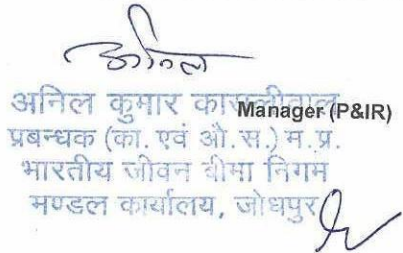 अनिल
अनिल कुमार कासलीवाल Manager (P&IR)
प्रबन्धक (का. एवं औ.स.) म.प्र.
भारतीय जीवन बीमा निगम
मण्डल कार्यालय, जोधपुर